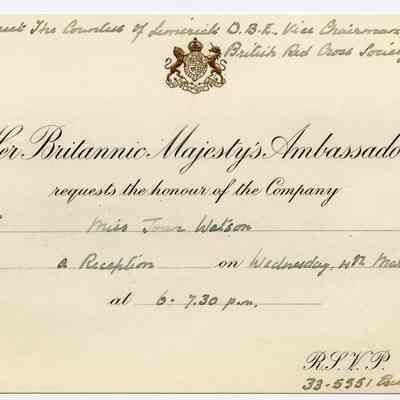 The Countess of Limerick D.B.E. Vice Chairman
British Red Cross Society
Her Britannic Majesty's Ambassado
requests the honour of the Company
Miss Watson
a Reception on Wednesday, 4th Ma
at 6 - 7.30 p.m.
R.S.V.P.
33-5351